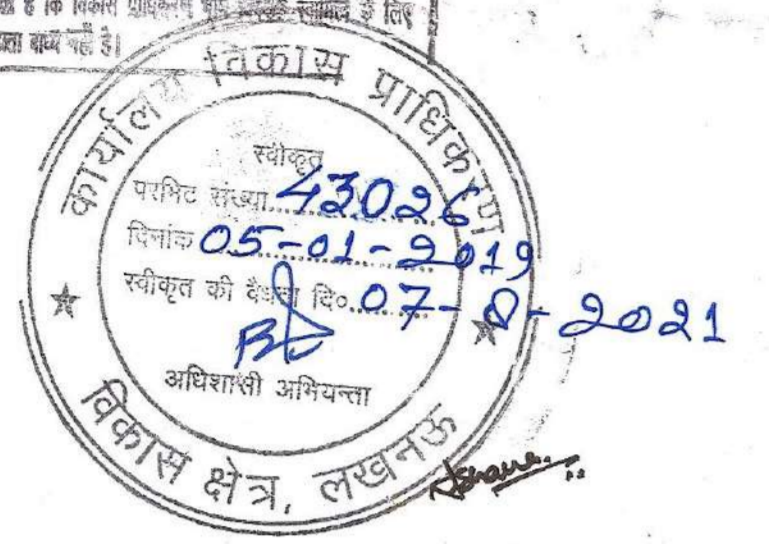 है कि विकास
बाध्य नहीं है।
कार्यालय विकास प्राधिकरण
स्वीकृत
परमिट संख्या 43026
दिनांक 05-01-2019
स्वीकृत की वैधता दि० 07-8-2021
अधिशासी अभियन्ता
विकास क्षेत्र, लखनऊ